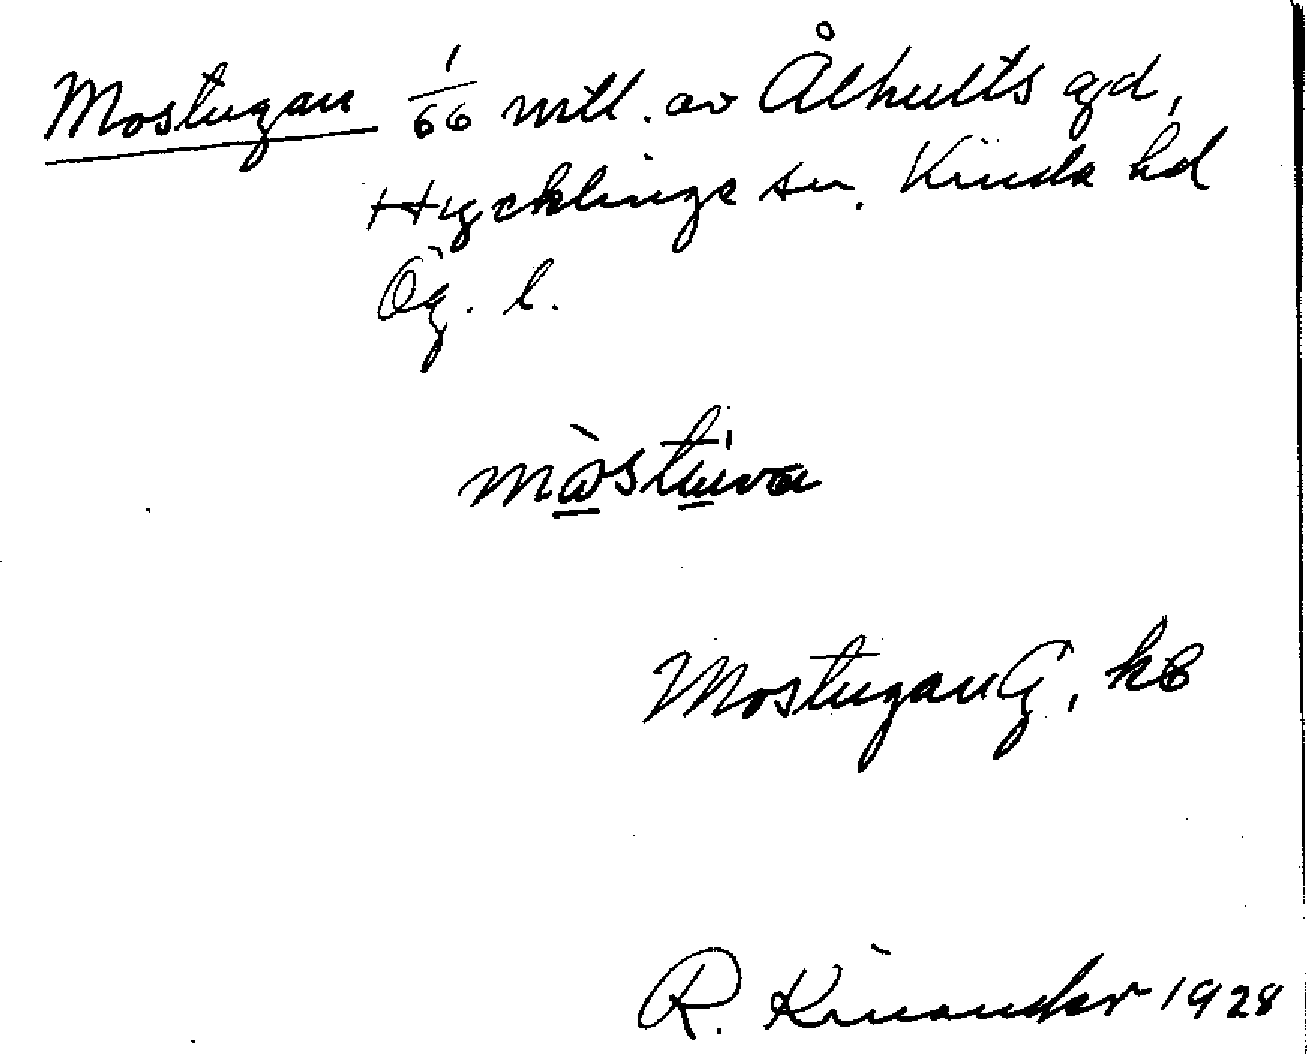 Mostugan 1/66 mtl. av Ålhults gd,
Hycklinge sn. Kinda hd
Ög. l.
mo̱stu̱va
Mostugan G, kb
R. Kinander 1928